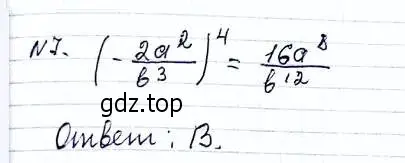 N7. (-2a²/b³)⁴ = 16a⁸/b¹²
gdz.top
Ответ: В.